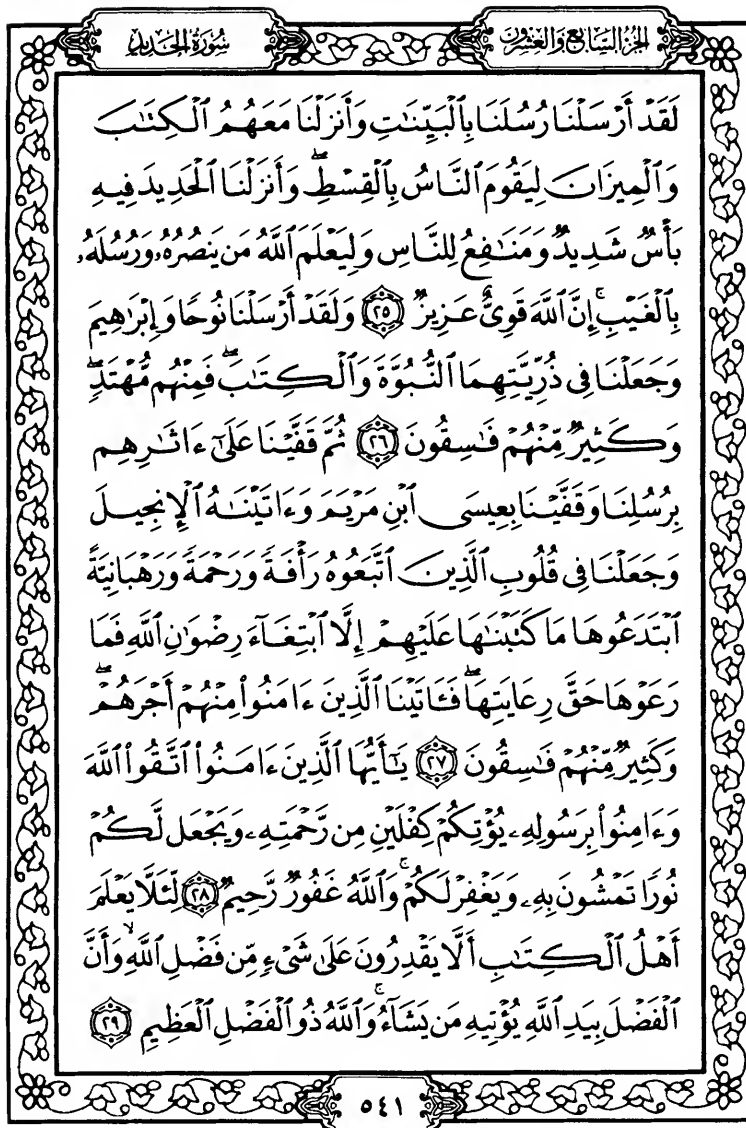 الجزء السابع والعشرون
سورة الحديد
لَقَدْ أَرْسَلْنَا رُسُلَنَا بِٱلْبَيِّنَٰتِ وَأَنزَلْنَا مَعَهُمُ ٱلْكِتَٰبَ
وَٱلْمِيزَانَ لِيَقُومَ ٱلنَّاسُ بِٱلْقِسْطِۖ وَأَنزَلْنَا ٱلْحَدِيدَ فِيهِ
بَأْسٌ شَدِيدٌ وَمَنَٰفِعُ لِلنَّاسِ وَلِيَعْلَمَ ٱللَّهُ مَن يَنصُرُهُۥ وَرُسُلَهُۥ
بِٱلْغَيْبِۚ إِنَّ ٱللَّهَ قَوِىٌّ عَزِيزٌ ٢٥ وَلَقَدْ أَرْسَلْنَا نُوحًا وَإِبْرَٰهِيمَ
وَجَعَلْنَا فِى ذُرِّيَّتِهِمَا ٱلنُّبُوَّةَ وَٱلْكِتَٰبَۖ فَمِنْهُم مُّهْتَدٍۖ
وَكَثِيرٌ مِّنْهُمْ فَٰسِقُونَ ٢٦ ثُمَّ قَفَّيْنَا عَلَىٰٓ ءَاثَٰرِهِم
بِرُسُلِنَا وَقَفَّيْنَا بِعِيسَى ٱبْنِ مَرْيَمَ وَءَاتَيْنَٰهُ ٱلْإِنجِيلَ
وَجَعَلْنَا فِى قُلُوبِ ٱلَّذِينَ ٱتَّبَعُوهُ رَأْفَةً وَرَحْمَةً وَرَهْبَانِيَّةً
ٱبْتَدَعُوهَا مَا كَتَبْنَٰهَا عَلَيْهِمْ إِلَّا ٱبْتِغَآءَ رِضْوَٰنِ ٱللَّهِ فَمَا
رَعَوْهَا حَقَّ رِعَايَتِهَاۖ فَـَٔاتَيْنَا ٱلَّذِينَ ءَامَنُوا۟ مِنْهُمْ أَجْرَهُمْۖ
وَكَثِيرٌ مِّنْهُمْ فَٰسِقُونَ ٢٧ يَٰٓأَيُّهَا ٱلَّذِينَ ءَامَنُوا۟ ٱتَّقُوا۟ ٱللَّهَ
وَءَامِنُوا۟ بِرَسُولِهِۦ يُؤْتِكُمْ كِفْلَيْنِ مِن رَّحْمَتِهِۦ وَيَجْعَل لَّكُمْ
نُورًا تَمْشُونَ بِهِۦ وَيَغْفِرْ لَكُمْۚ وَٱللَّهُ غَفُورٌ رَّحِيمٌ ٢٨ لِّئَلَّا يَعْلَمَ
أَهْلُ ٱلْكِتَٰبِ أَلَّا يَقْدِرُونَ عَلَىٰ شَىْءٍ مِّن فَضْلِ ٱللَّهِۙ وَأَنَّ
ٱلْفَضْلَ بِيَدِ ٱللَّهِ يُؤْتِيهِ مَن يَشَآءُۚ وَٱللَّهُ ذُو ٱلْفَضْلِ ٱلْعَظِيمِ ٢٩
٥٤١